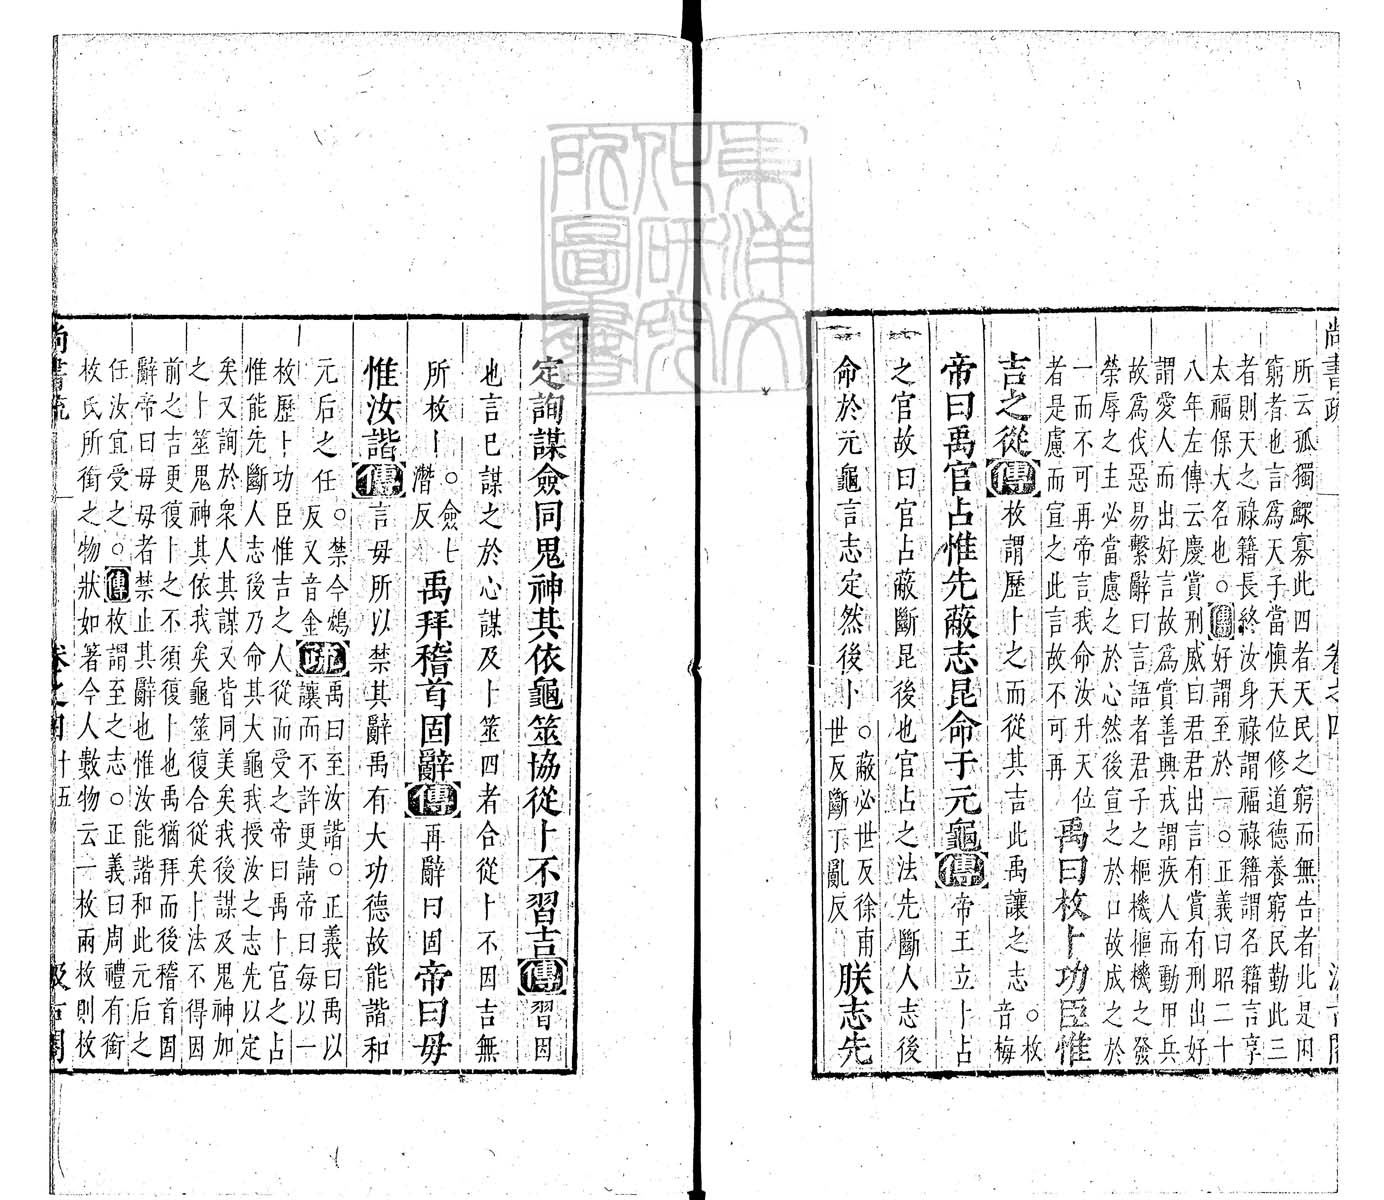 尚書疏 卷之四 汲古閣
所云孤獨鰥寡此四者天民之窮而無告者此是困
窮者也言爲天子當愼天位修道德養窮民勤此三
者則天之祿籍長終汝身祿謂福祿籍謂名籍言享
太福保大名也○傳好謂至於一○正義曰昭二十
八年左傳云慶賞刑威曰君君出言有賞有刑出好
謂愛人而出好言故爲賞善興戎謂疾人而動甲兵
故爲伐惡易繫辭曰言語者君子之樞機樞機之發
榮辱之主必當慮之於心然後宣之於口故成之於
一而不可再帝言我命汝升天位
者是慮而宣之此言故不可再
禹曰枚卜功臣惟
吉之從傳枚謂歷卜之而從其吉此禹讓之志○枚
音梅
帝曰禹官占惟先蔽志昆命于元龜傳帝王立卜占
之官故曰官占蔽斷昆後也官占之法先斷人志後
命於元龜言志定然後卜○蔽必世反徐甫
世反斷丁亂反
朕志先
定詢謀僉同鬼神其依龜筮協從卜不習吉傳習因
也言已謀之於心謀及卜筮四者合從卜不因吉無
所枚卜○僉七
潛反
禹拜稽首固辭傳再辭曰固帝曰毋
惟汝諧傳言毋所以禁其辭禹有大功德故能諧和
元后之任○禁今鴆
反又音金
疏禹曰至汝諧○正義曰禹以
讓而不許更請帝曰每以一
枚歷卜功臣惟吉之人從而受之帝曰禹卜官之占
惟能先斷人志後乃命其大龜我授汝之志先以定
矣又詢於衆人其謀又皆同美矣我後謀及鬼神加
之卜筮鬼神其依我矣龜筮復合從矣卜法不得因
前之吉更復卜之不須復卜也禹猶拜而後稽首固
辭帝曰毋毋者禁止其辭也惟汝能諧和此元后之
任汝宜受之○傳枚謂至之志○正義曰周禮有銜
枚氏所銜之物狀如箸今人數物云一枚兩枚則枚
尚書疏 卷之四 十五 汲古閣
東洋文
化研究
所圖書